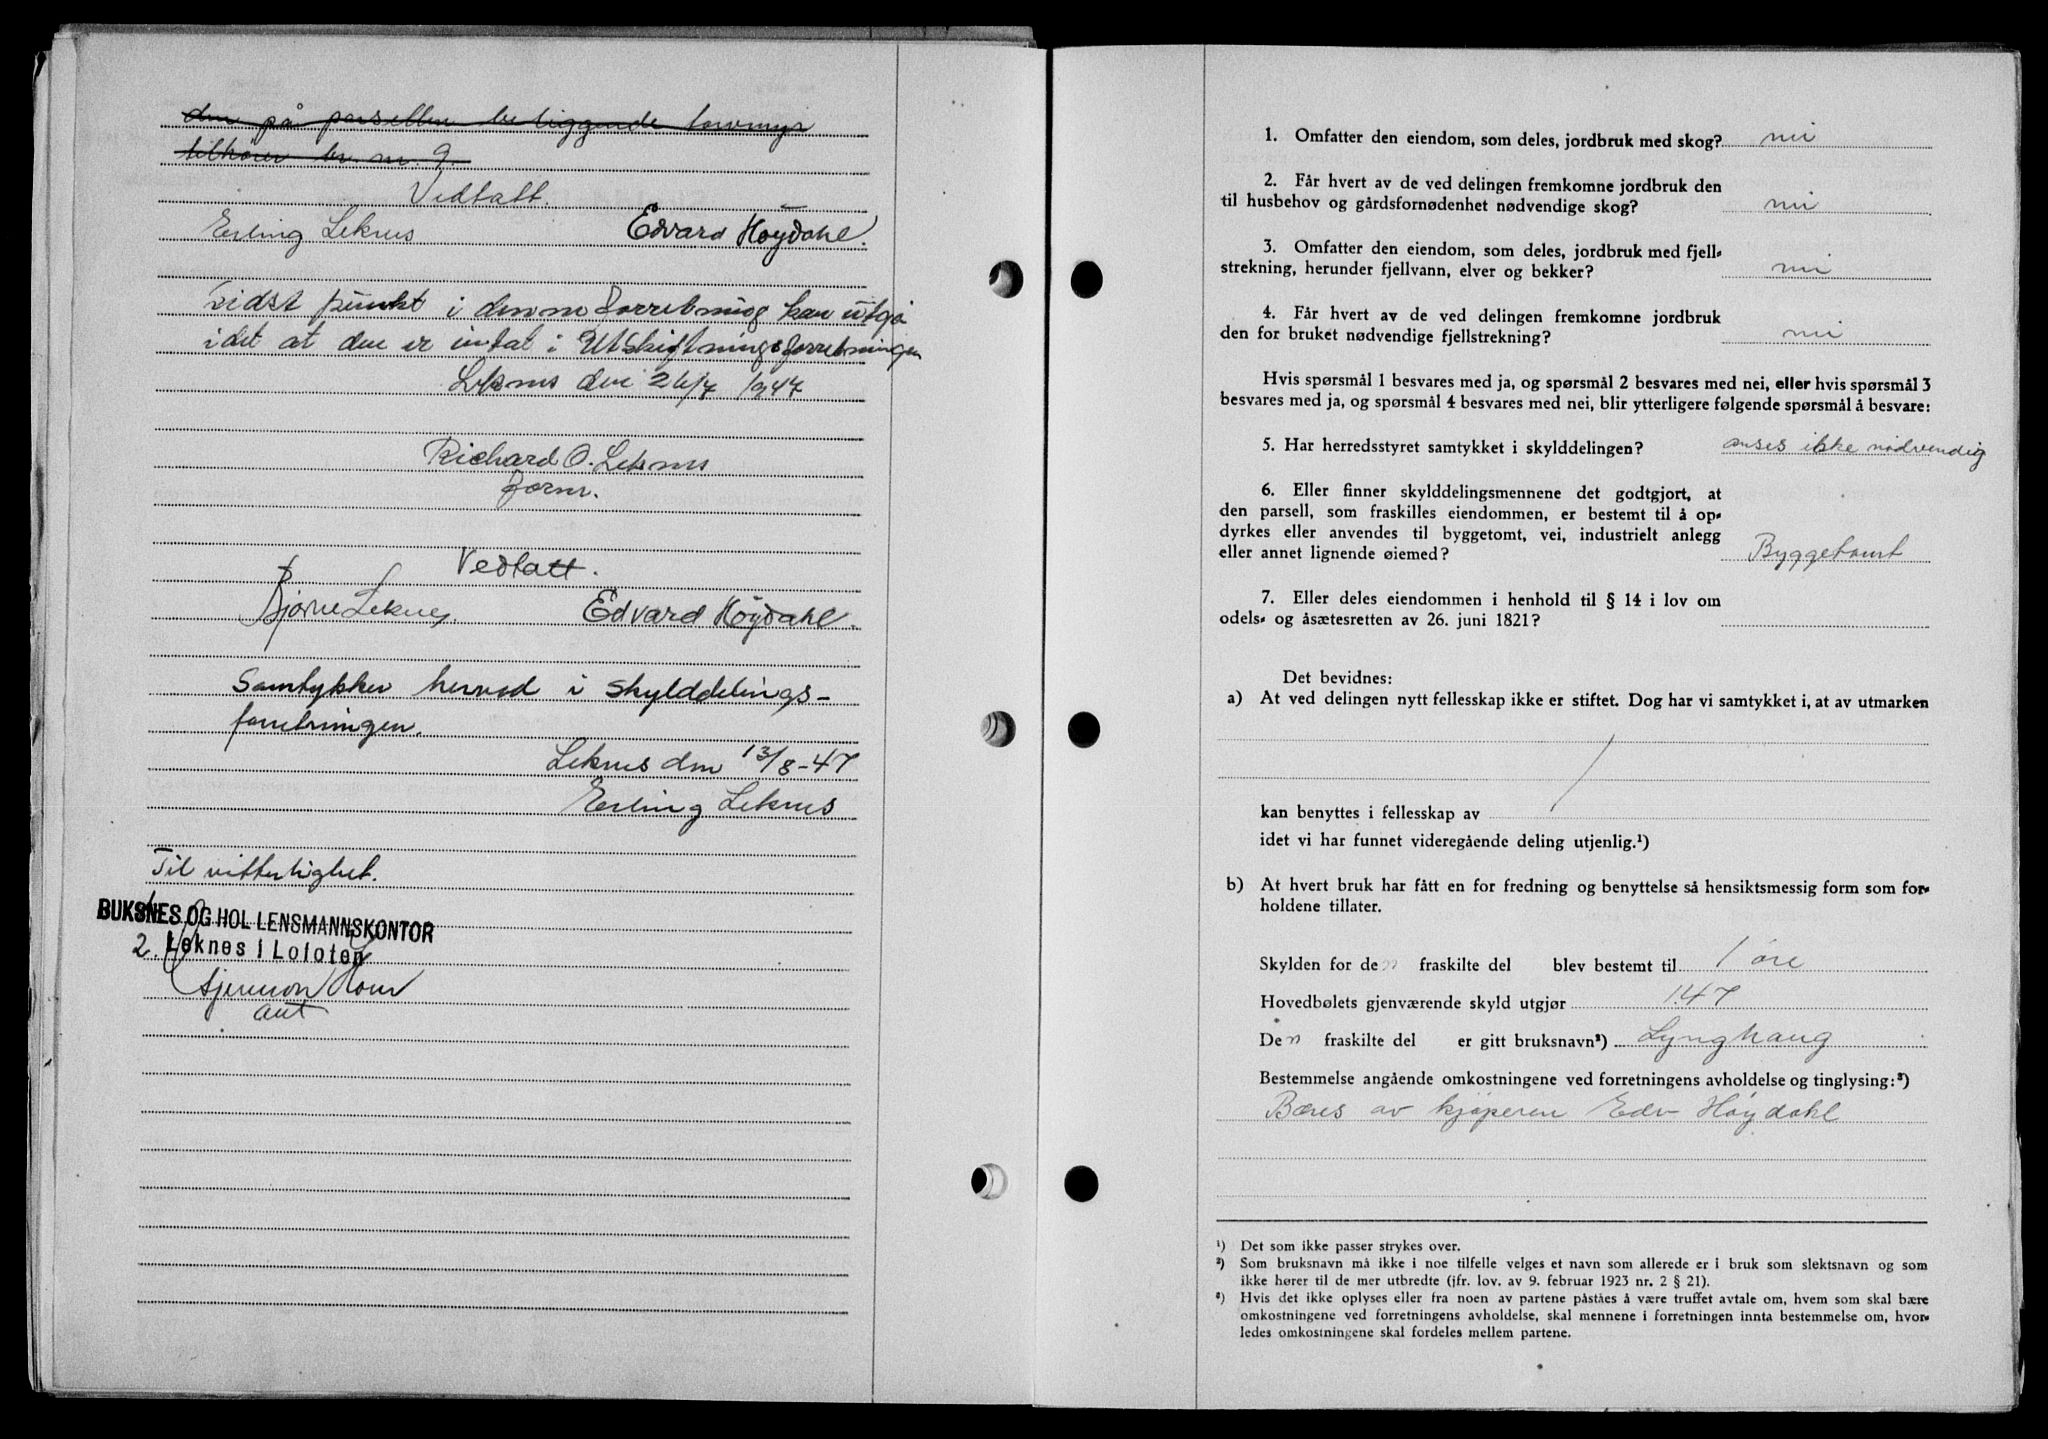 den på parsellen beliggende torvmyr
tilhører br. nr. 9.
Vedtatt.
Erling Leknes Edvard Høydahl.
Sidst punkt i denne forretning kan utgå
idet at den er intat i Utskiftningsforretningen
Leknes den 26/7 1947
Richard O. Leknes
form.
Vedtatt.
Bjarne Leknes. Edvard Høydahl.
Samtykker herved i skylddelings-
forretningen.
Leknes den 13/8-47
Erling Leknes
Til vitterlighet.
BUKSNES OG HOL LENSMANNSKONTOR
Leknes i Lofoten
2.
aut
1. Omfatter den eiendom, som deles, jordbruk med skog? nei
2. Får hvert av de ved delingen fremkomne jordbruk den
til husbehov og gårdsfornødenhet nødvendige skog? nei
3. Omfatter den eiendom, som deles, jordbruk med fjell-
strekning, herunder fjellvann, elver og bekker? nei
4. Får hvert av de ved delingen fremkomne jordbruk
den for bruket nødvendige fjellstrekning? nei
Hvis spørsmål 1 besvares med ja, og spørsmål 2 besvares med nei, eller hvis spørsmål 3
besvares med ja, og spørsmål 4 besvares med nei, blir ytterligere følgende spørsmål å besvare:
5. Har herredsstyret samtykket i skylddelingen? anses ikke nødvendig
6. Eller finner skylddelingsmennene det godtgjort, at
den parsell, som fraskilles eiendommen, er bestemt til å op-
dyrkes eller anvendes til byggetomt, vei, industrielt anlegg
eller annet lignende øiemed? Byggetomt
7. Eller deles eiendommen i henhold til § 14 i lov om
odels- og åsætesretten av 26. juni 1821?
Det bevidnes:
a) At ved delingen nytt fellesskap ikke er stiftet. Dog har vi samtykket i, at av utmarken
kan benyttes i fellesskap av
idet vi har funnet videregående deling utjenlig.¹)
b) At hvert bruk har fått en for fredning og benyttelse så hensiktsmessig form som for-
holdene tillater.
Skylden for den fraskilte del blev bestemt til 1 øre
Hovedbølets gjenværende skyld utgjør 1.47
Den fraskilte del er gitt bruksnavn²) Lynghaug
Bestemmelse angående omkostningene ved forretningens avholdelse og tinglysing:³)
Bæres av kjøperen Edv Høydahl
¹) Det som ikke passer strykes over.
²) Som bruksnavn må ikke i noe tilfelle velges et navn som allerede er i bruk som slektsnavn og som
ikke hører til de mer utbredte (jfr. lov. av 9. februar 1923 nr. 2 § 21).
³) Hvis det ikke oplyses eller fra noen av partene påståes å være truffet avtale om, hvem som skal bære
omkostningene ved forretningens avholdelse, skal mennene i forretningen innta bestemmelse om, hvor-
ledes omkostningene skal fordeles mellem partene.